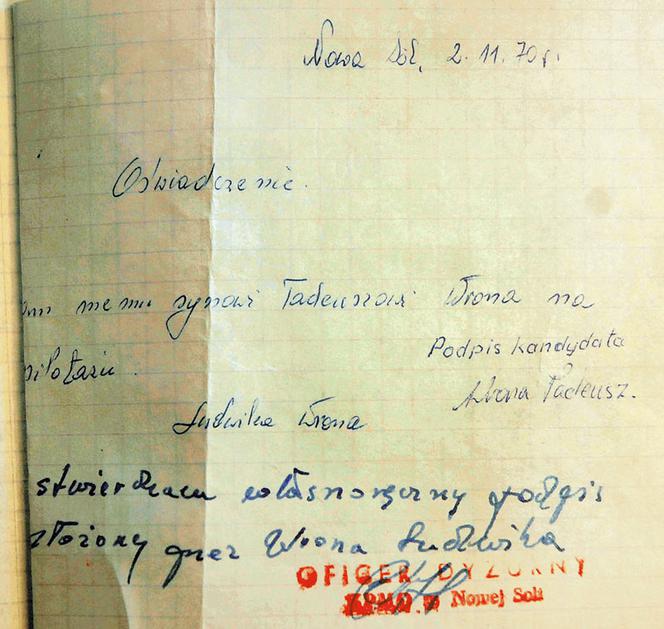 Nowa Sól, 2.11.70 r.
Oświadczenie.
memu synowi Tadeuszowi Wrona na
Podpis kandydata
pilotażu.
Wrona Tadeusz.
Ludwika Wrona
stwierdzam własnoręczny podpis
złożony przez Wrona Ludwika
OFICER DYŻURNY
KPMO w Nowej Soli